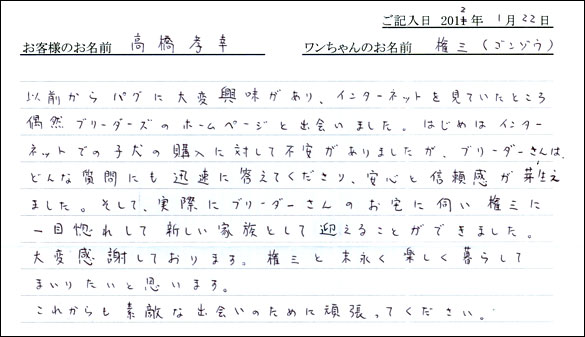 ご記入日 2012年 1月22日
お客様のお名前 高橋孝幸 ワンちゃんのお名前 権三(ゴンゾウ)
以前からパグに大変興味があり、インターネットを見ていたところ
偶然ブリーダーズのホームページと出会いました。はじめはインター
ネットでの子犬の購入に対して不安がありましたが、ブリーダーさんは、
どんな質問にも迅速に答えてくださり、安心と信頼感が芽生え
ました。そして、実際にブリーダーさんのお宅に伺い権三に
一目惚れして新しい家族として迎えることができました。
大変感謝しております。権三と末永く楽しく暮らして
まいりたいと思います。
これからも素敵な出会いのために頑張ってください。